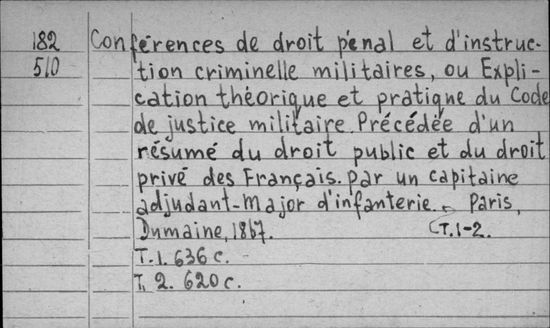 182 Conférences de droit pénal et d'instruc-
510 tion criminelle militaires, ou Expli-
cation théorique et pratique du Code
de justice militaire. Précédée d'un
résumé du droit public et du droit
privé des Français. Par un capitaine
adjudant-Major d'infanterie. Paris,
Dumaine, 1867. T.1-2.
T.1. 636 c.
T. 2. 620 c.